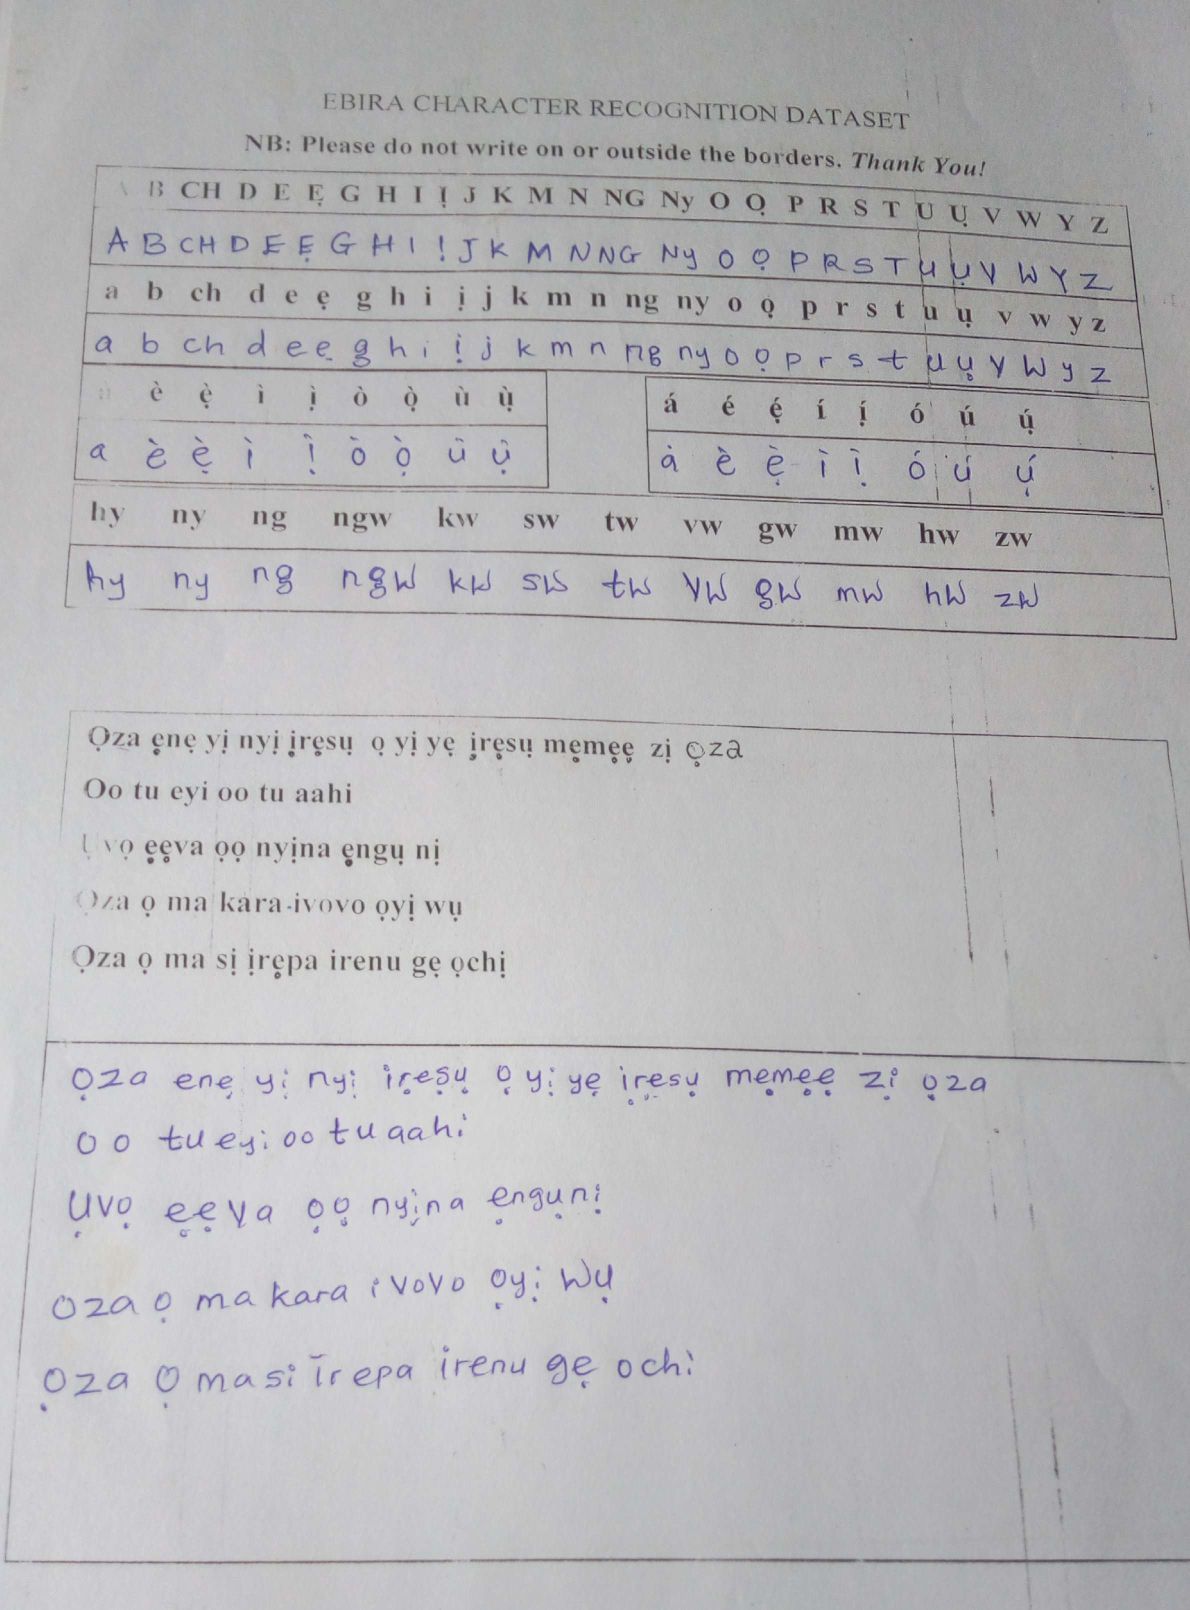 EBIRA CHARACTER RECOGNITION DATASET
NB: Please do not write on or outside the borders. Thank You!
A B CH D E Ẹ G H I Ị J K M N NG Ny O Ọ P R S T U Ụ V W Y Z
A B CH D E Ẹ G H I Ị J K M N NG Ny O Ọ P R S T U Ụ V W Y Z
a b ch d e ẹ g h i ị j k m n ng ny o ọ p r s t u ụ v w y z
a b ch d e ẹ g h i ị j k m n ng ny o ọ p r s t u ụ v w y z
è ẹ̀ ì ị̀ ò ọ̀ ù ụ̀ á é ẹ́ í ị́ ó ú ụ́
a è ẹ̀ ì ị̀ ò ọ̀ ù ụ̀ à è ẹ̀ ì ị̀ ó ú ụ́
hy ny ng ngw kw sw tw vw gw mw hw zw
hy ny ng ngw kw sw tw vw gw mw hw zw
Ọza ẹnẹ yị nyị ịrẹsụ ọ yị yẹ ịrẹsụ mẹmẹẹ zị ọza
Oo tu eyi oo tu aahi
Ụvọ ẹẹva ọọ nyịna ẹngụ nị
Ọza ọ ma kara ivovo ọyị wụ
Ọza ọ ma sị ịrẹpa irenu gẹ ọchị
ọza enẹ yị nyị iṛẹṣụ ọ yị yẹ ịṛẹsụ mẹmẹẹ zị ọza
oo tu eyi oo tu aahi
Ụvọ ẹẹva ọọ nyịna ẹngụnị
oza ọ ma kara ivovo ọyị wụ
ọza ọ masi īrepa irenu gẹ ochi